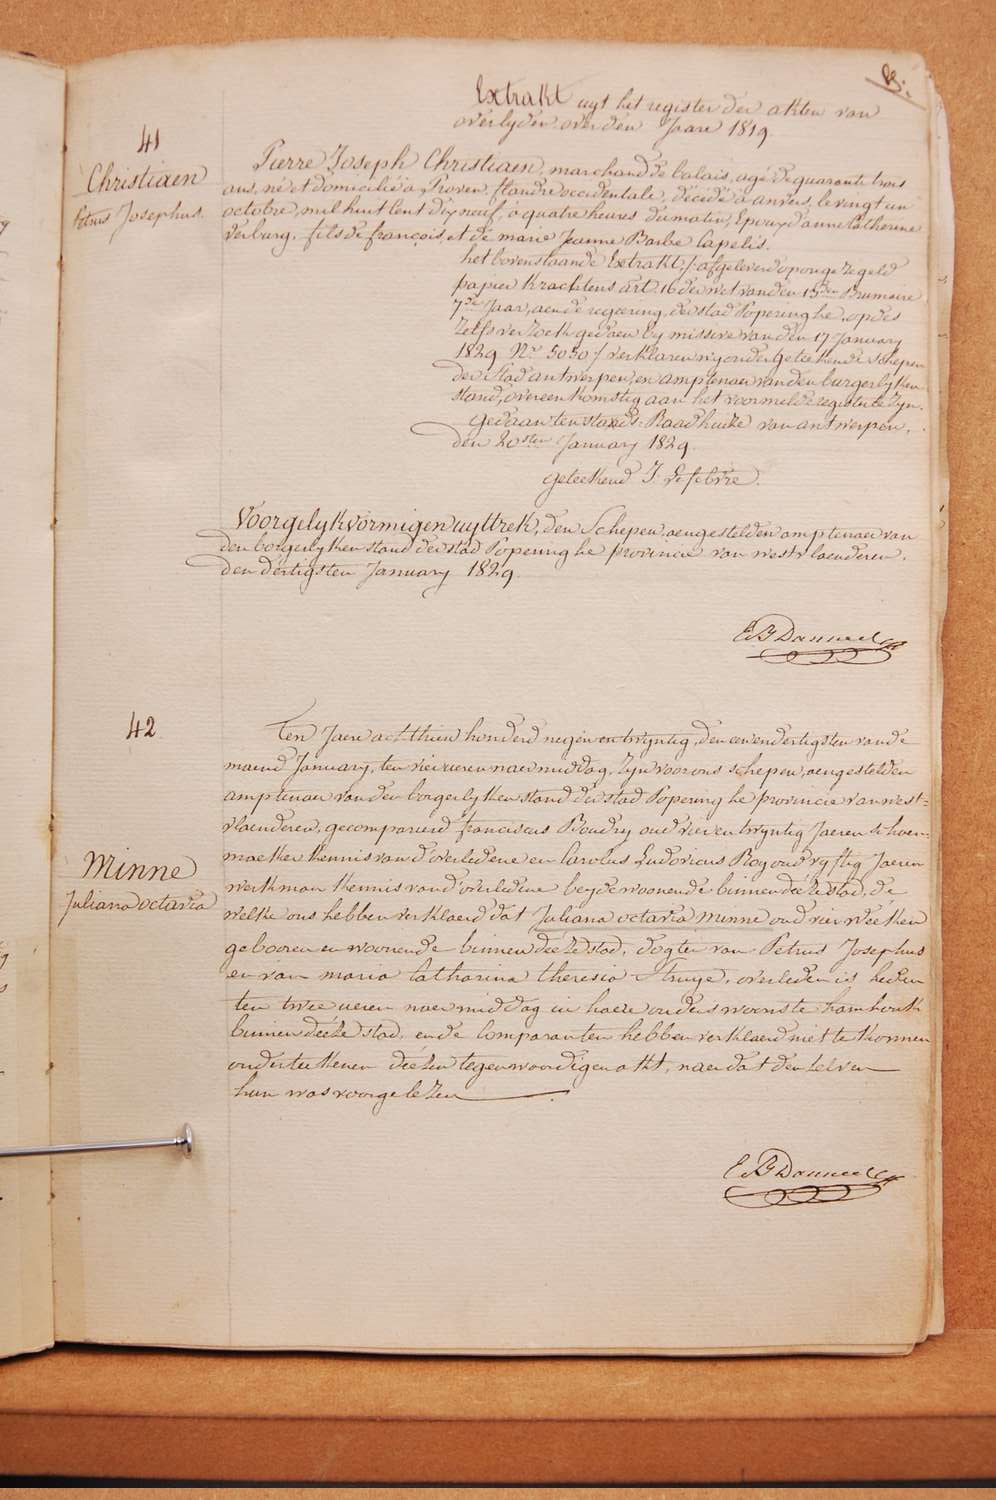 13.
Extrakt uyt het register der akten van
overlyden over den Jaare 1819.
41
Christiaen
Petrus Josephus.
Pierre Joseph Christiaen, marchand de balais, agé de quarante trois
ans, né et domicilié à Proven, flandre occidentale, décédé à anvers, le vingt un
octobre, mil huit cent dix neuf, à quatre heures du matin, Epoux d'anne Catherine
Verburg, fils de françois, et de marie Jeanne Barbe Capelis.
het bovenstaande Extrakt, /: afgeleverd op ongezegeld
papier Krachtens art. 16 der wet van den 13den Brumaire
7de Jaar, aen de regeering, der stad Poperinghe, op des
zelfs verzoek gedaen by missive van den 17 January
1829 No 5050 / verklaren wy ondergeteekende schepen
der Stad antwerpen, en amptenaer van den burgerlyken
stand, overeenkomstig aan het voormelde register te zyn.
gedaan ten stads: Raadhuize van antwerpen,
den 20sten January 1829.
geteekend J. Lefebvre.
Voorgelykvormigen uyttrek, den Schepen, aengestelden amptenaer van
den borgerlyken stand der stad Poperinghe provincie van westvlaenderen,
den dertigsten January 1829.
E B Danneel
42
Minne
Juliana octavia
Ten Jaere achthien honderd negen en twyntig, den eenendertigsten van de
maend January, ten vier ueren naermiddag, zyn voor ons schepen, aengestelden
amptenaer van den borgerlyken stand der stad Poperinghe provincie van west=
vlaenderen, gecompareerd franciscus Boudry oud vier en twyntig Jaeren schoen-
maeker kennis van d'overledene en Carolus Ludovicus Roy oud vyftig Jaeren
werkman kennis van d'overledene beyde woonende binnen deéze stad, de
welke ons hebben verklaerd dat Juliana octavia Minne oud vier weéken
gebooren en woonende binnen deéze stad, dogter van Petrus Josephus
en van maria Catharina theresia Struye, overleden is heden
ten twee ueren naermiddag in haere ouders woonste hamhoek
binnen deéze stad, en de Comparanten hebben verklaerd niet te konnen
onderteekenen deézen tegenwoordigen akt, naer dat den zelven
hun was voorgelezen
E B Danneel